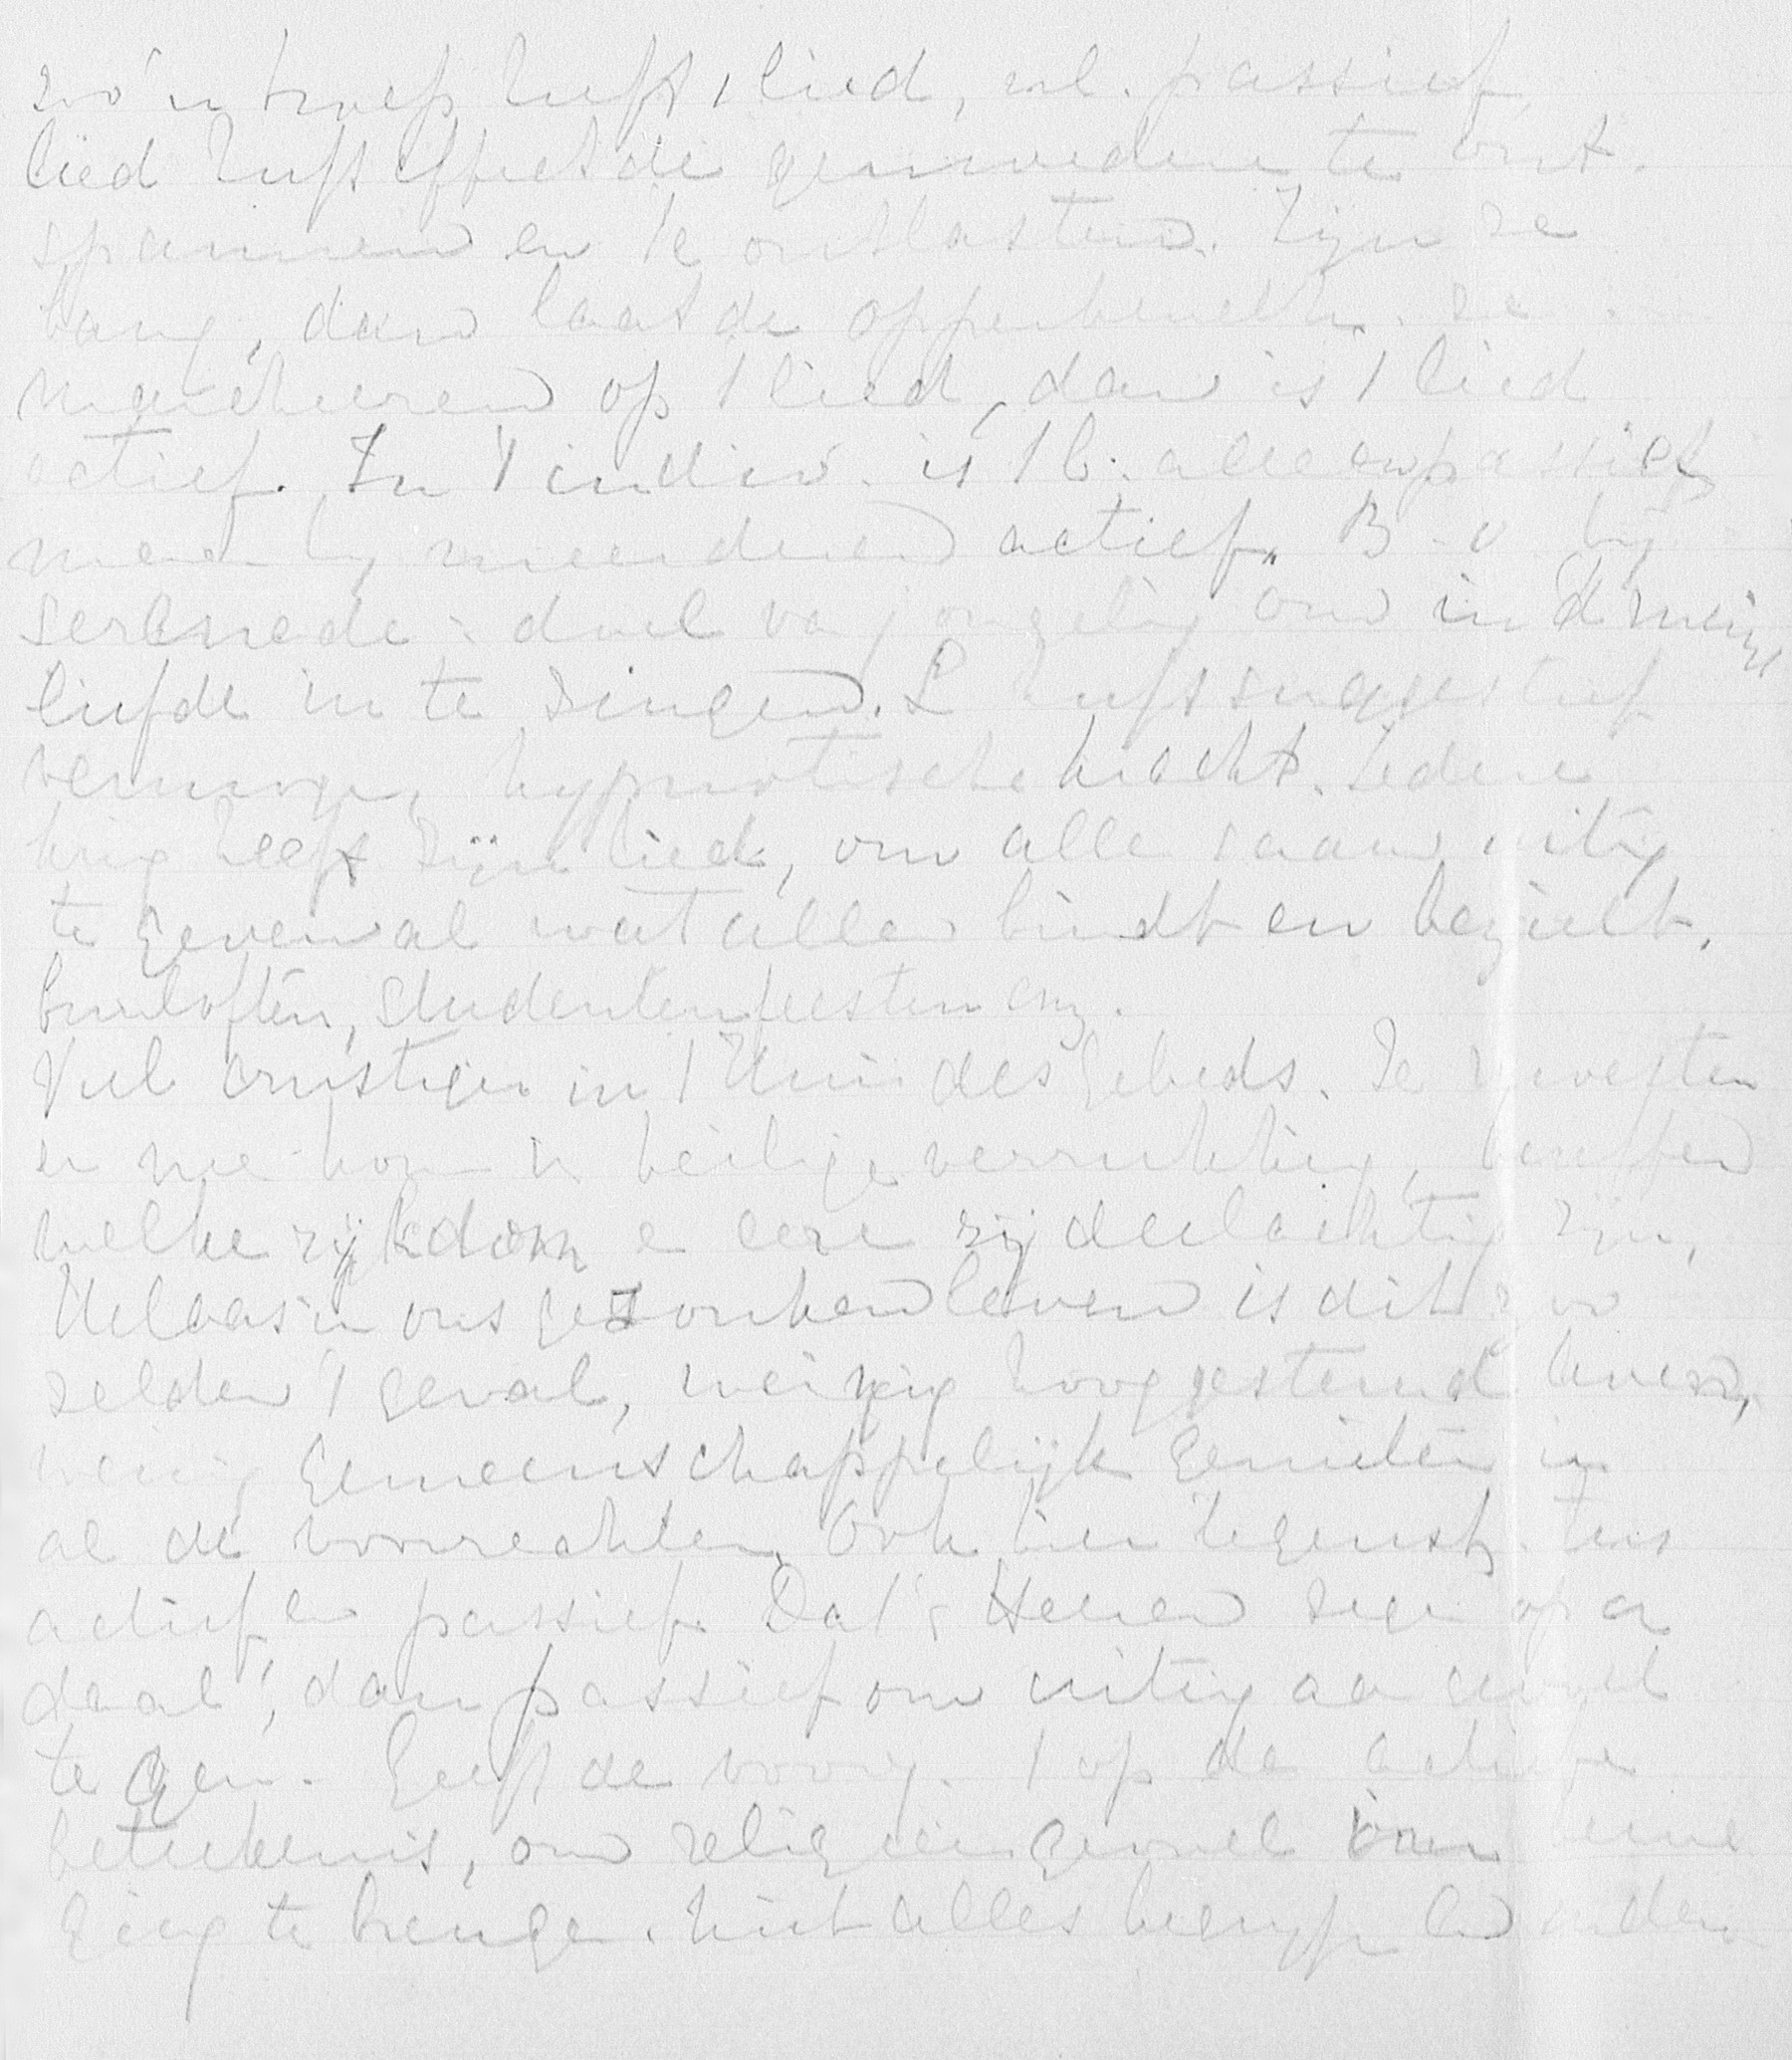 zoo'n troep heeft 't lied, nl. passief,
lied heeft effect de gemoederen te ont-
spannen en te ontlasten. Zijn ze
bang, dan laat de opperbevelh. ze
marcheeren op 't lied, dan is 't lied
actief. In 't indiv. is 't l. alleen passief
maar bij meerderen actief. B.v. bij
serenade: doel van jongeling om in 't meisje
liefde in te zingen. L heeft suggestief
vermogen, hypnotische kracht. Iedere
kring heeft zijn lied, om alle saam uiting
te geven al wat allen bindt en bezielt.
bruiloften, studentenfeesten enz.
Veel ernstiger in 't Huis des Gebeds. Ze
en heilige verrukking, beseffen
welke rijkdom e eere zij deelachtig zijn.
Helaas in ons gezonken leven is dit zoo
zelden 't geval, weinig hooggestemd
weinig gemeenschappelijk genieten in
al de voorrechten. Ook hier tegenst. tus
actief en passief. Dat 's Heeren zegen op a
daal', dan passief om uiting aa gevoel
te geven. Geeft de voorg. 't op de actieve
beteekenis, om relig. gevoel
ging te brengen. Niet alles